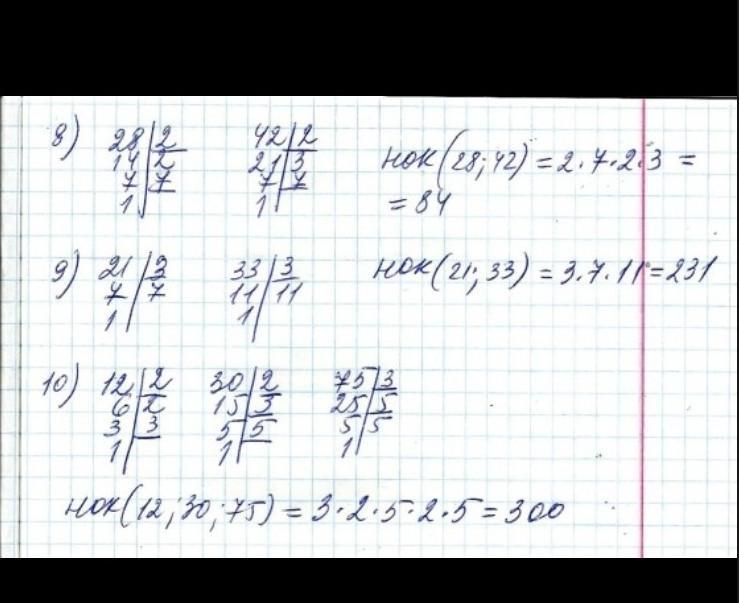 8) 28|2 42|2 НОК(28;42) = 2·7·2·3 =
14|2 21|3 = 84
7|7 7|7
1| 1|
9) 21|3 33|3 НОК(21;33) = 3·7·11=231
7|7 11|11
1| 1|
10) 12|2 30|2 75|3
6|2 15|3 25|5
3|3 5|5 5|5
1| 1| 1|
НОК(12;30;75) = 3·2·5·2·5=300